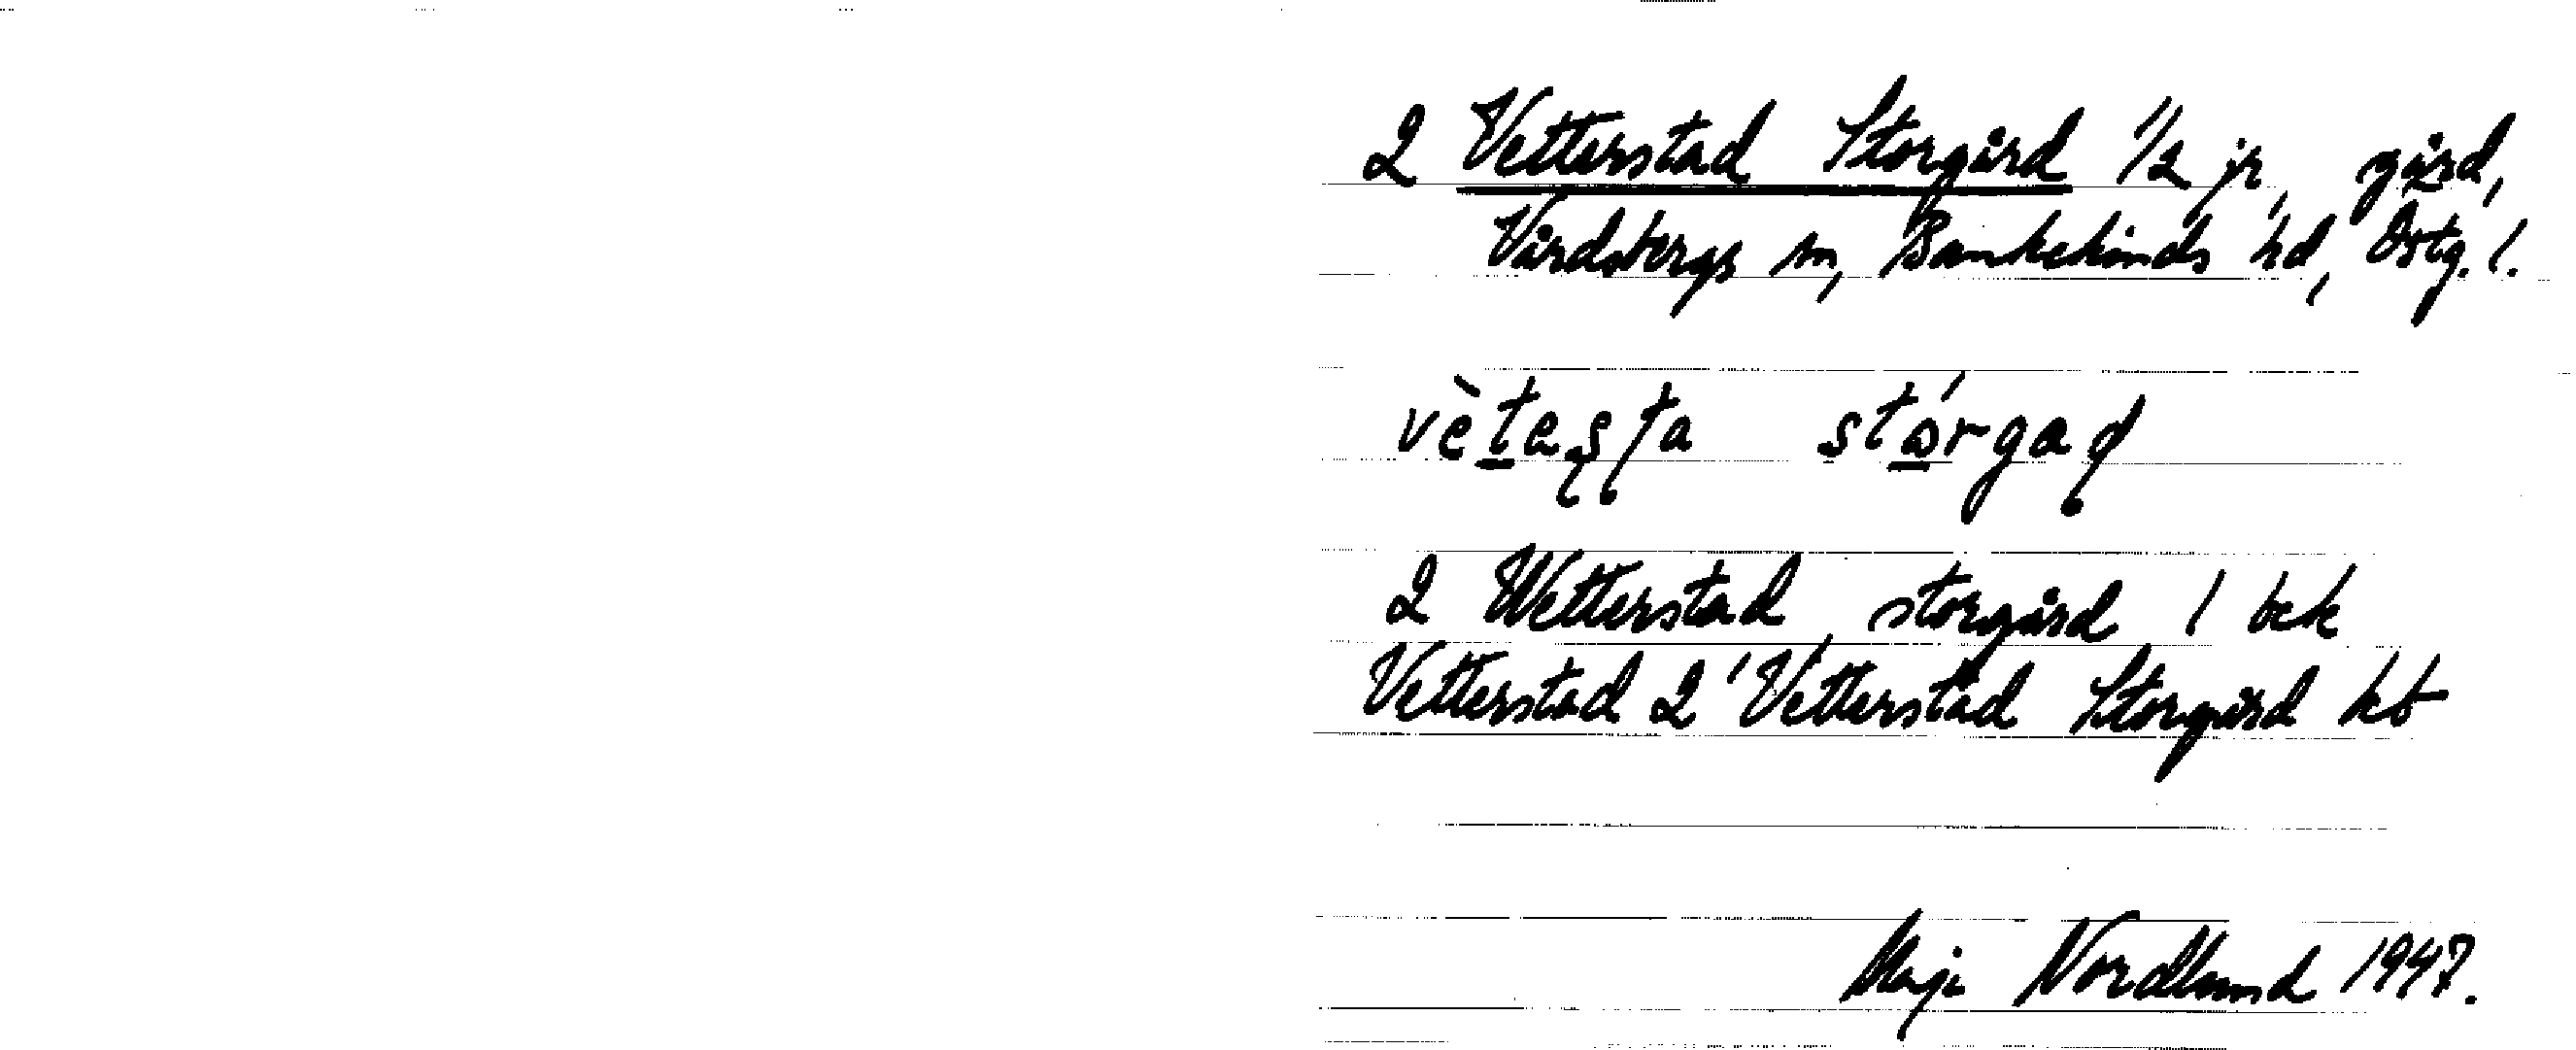 2 Vetterstad Storgård 1/2 jr, gård,
Vårdsbergs sn, Bankekinds hd, Östg. l.
vètaʂʈa stórgaɖ
2 Wetterstad storgård 1 bek
Vetterstad 2 Vetterstad Storgård kb
Maja Nordlund 1947.